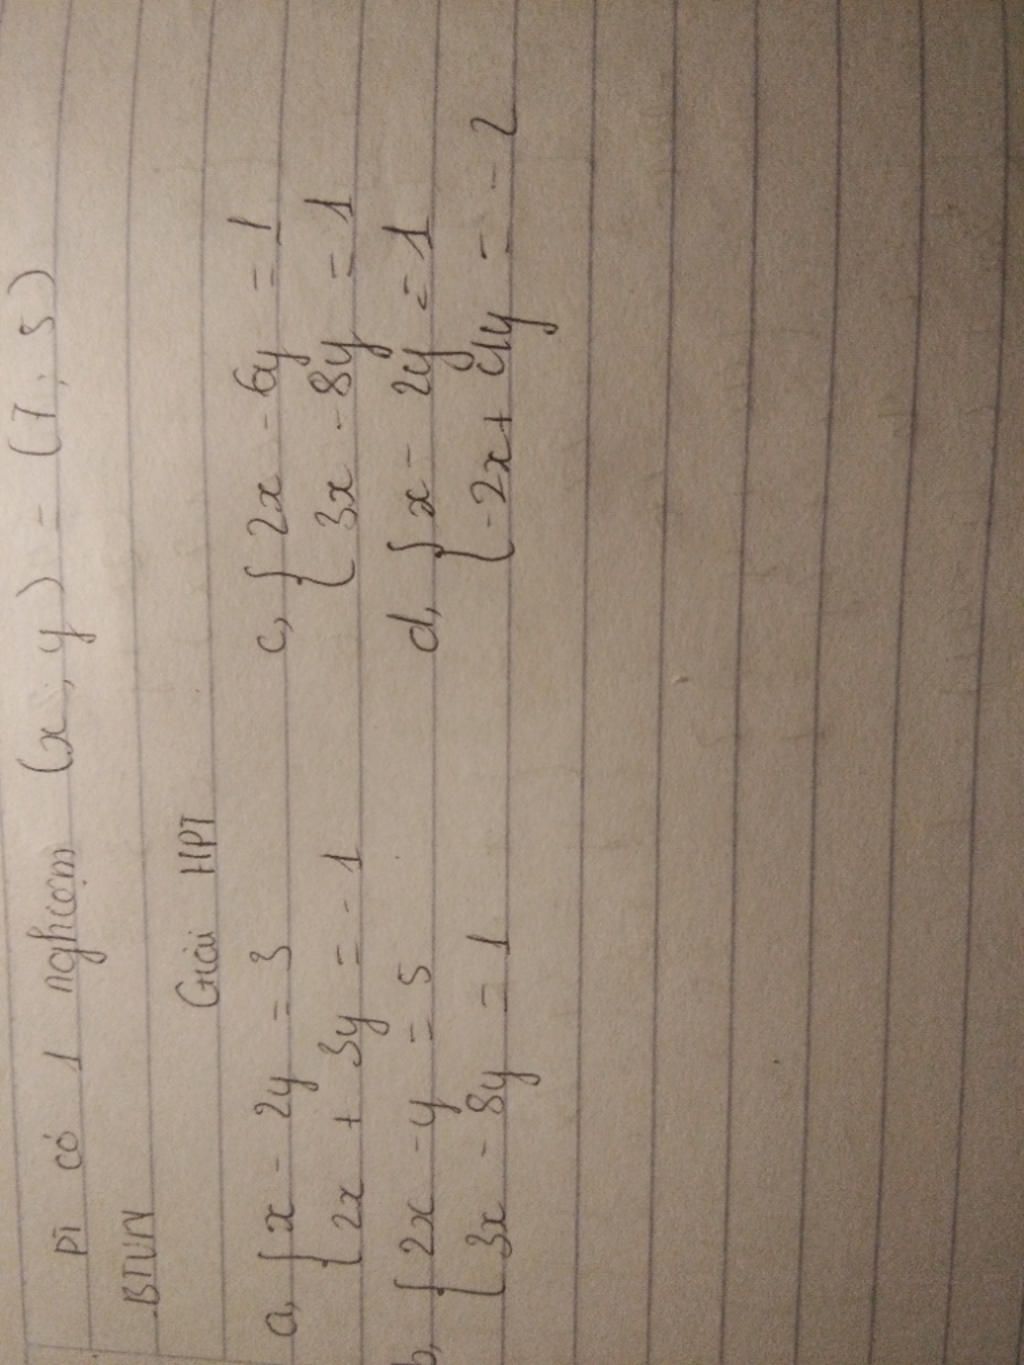 pt có 1 nghiệm (x, y) = (7; 5)
BTVN
Giải HPT
a, { x - 2y = 3
2x + 3y = -1
b, { 2x - y = 5
3x - 8y = 1
c, { 2x - 6y = 1
3x - 8y = 1
d, { x - 2y = 1
-2x + 4y = -2